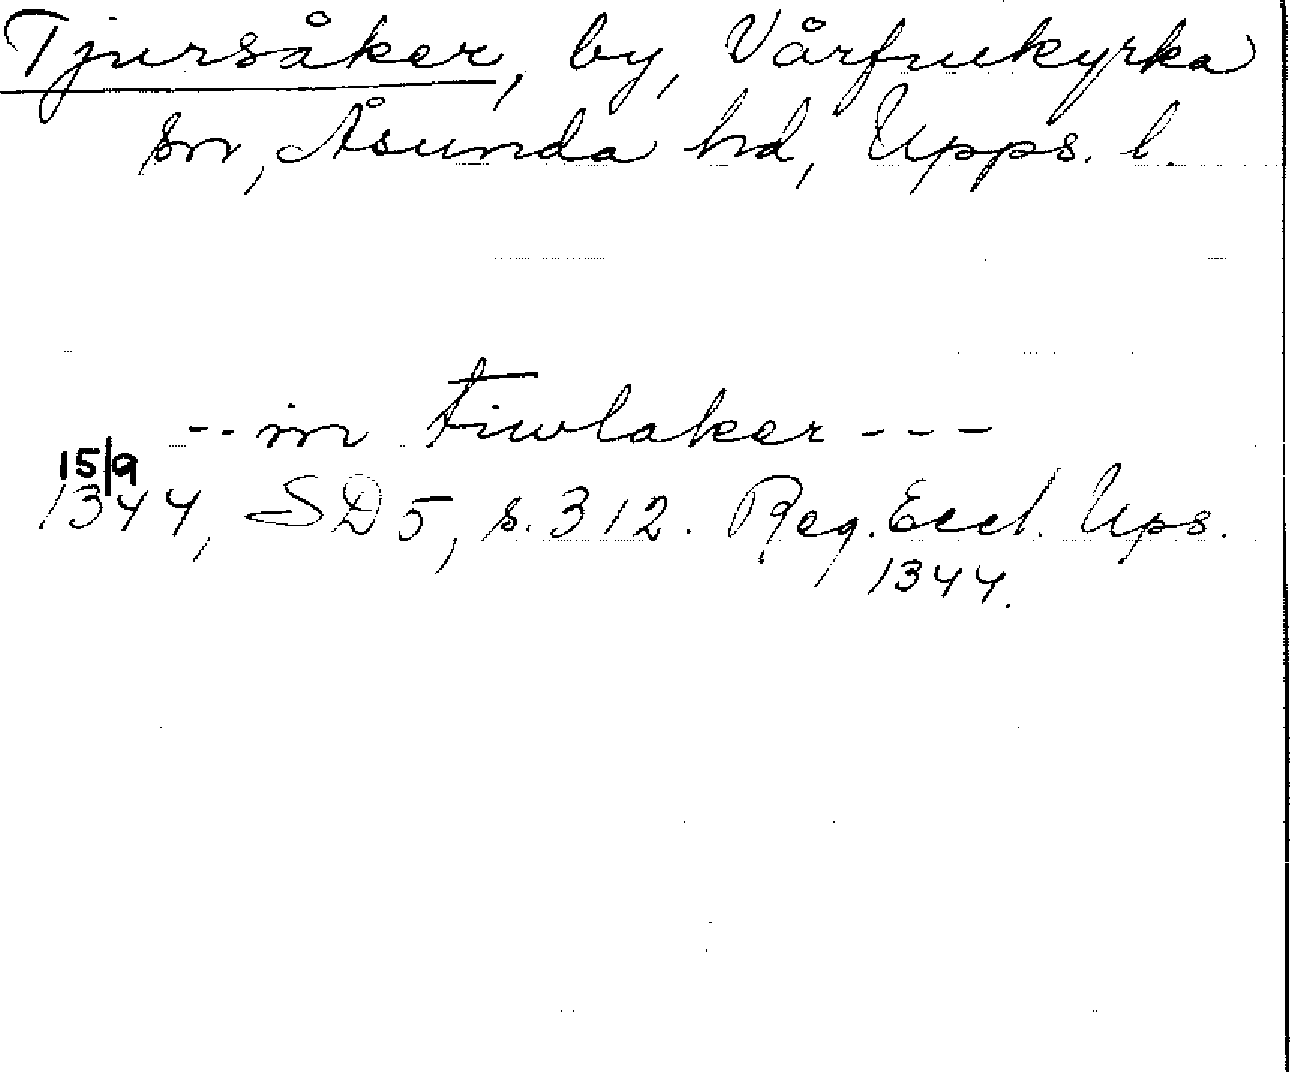 Tjursåker, by, Vårfrukyrka
sn, Åsunda hd, Upps. l.
-- in Tiwlaker ---
15/9
1344, SD 5, s. 312. Reg. Eccl. Ups.
1344.